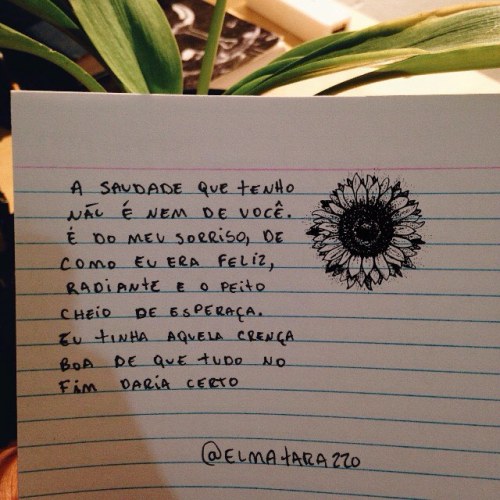 A SAUDADE QUE TENHO
NÃO É NEM DE VOCÊ.
É DO MEU SORRISO, DE
COMO EU ERA FELIZ,
RADIANTE E O PEITO
CHEIO DE ESPERAÇA.
EU TINHA AQUELA CRENÇA
BOA DE QUE TUDO NO
FIM DARIA CERTO
@ELMATARAZZO